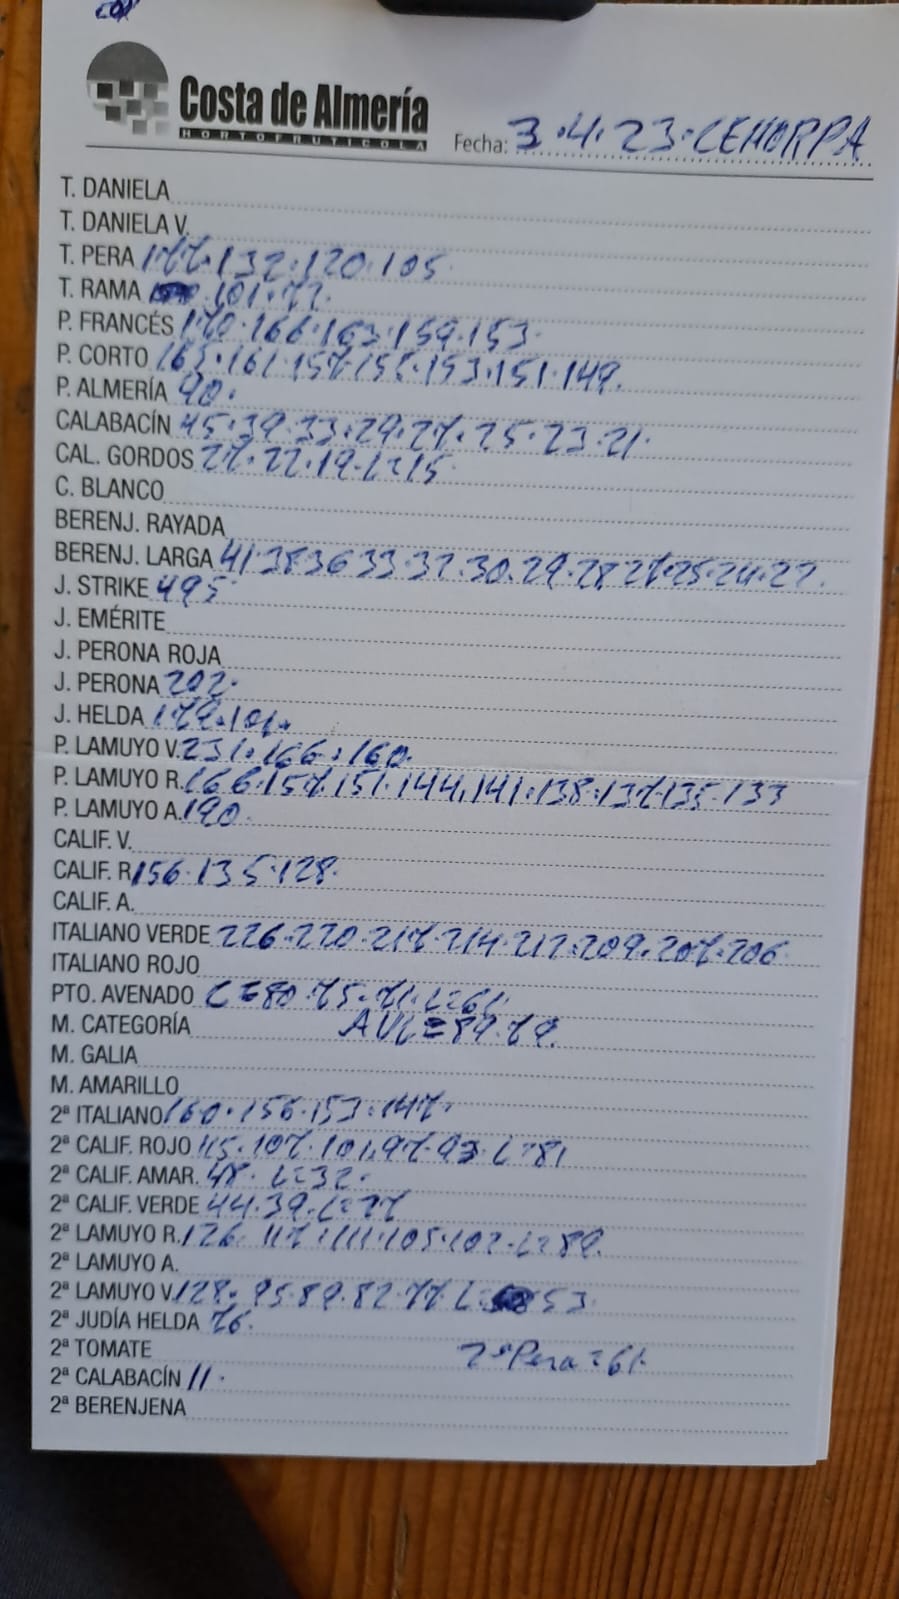 Costa de Almería
HORTOFRUTICOLA
Fecha: 3.4.23.CEHORPA
T. DANIELA
T. DANIELA V.
T. PERA 177.132.120.105
T. RAMA 101.77.
P. FRANCÉS 170.166.163.159.153.
P. CORTO 165.161.157.155.153.151.149.
P. ALMERÍA 90.
CALABACÍN 45.39.33.29.27.25.23.21.
CAL. GORDOS 27.22.19.L=15
C. BLANCO
BERENJ. RAYADA
BERENJ. LARGA 41.38.36.33.32.30.29.28.27.25.24.22.
J. STRIKE 495
J. EMÉRITE
J. PERONA ROJA
J. PERONA 202.
J. HELDA 179.101.
P. LAMUYO V. 231.166.160.
P. LAMUYO R. 166.157.151.144.141.138.137.135.133
P. LAMUYO A. 190.
CALIF. V.
CALIF. R 156.135.128.
CALIF. A.
ITALIANO VERDE 226.220.217.214.212.209.207.206.
ITALIANO ROJO
PTO. AVENADO C=80.75.71.L=61.
M. CATEGORÍA AVL=89.79.
M. GALIA
M. AMARILLO
2ª ITALIANO 160.156.153.147.
2ª CALIF. ROJO 115.107.101.97.93.L=81
2ª CALIF. AMAR. 48.L=32.
2ª CALIF. VERDE 44.39.L=27
2ª LAMUYO R. 126.117.111.105.102.L=89.
2ª LAMUYO A.
2ª LAMUYO V. 128.95.89.82.77 L=53.
2ª JUDÍA HELDA 76.
2ª TOMATE 2ª Pera=61.
2ª CALABACÍN 11.
2ª BERENJENA